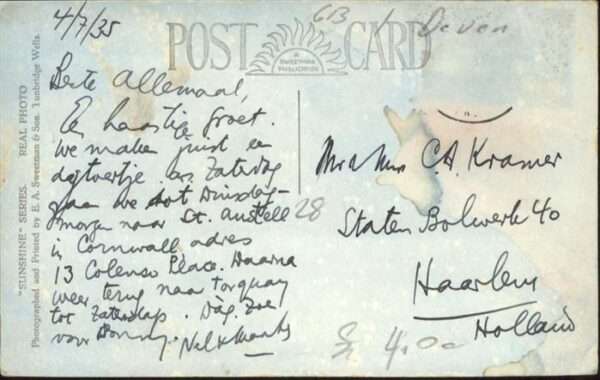 4/7/35
GB
Devon
POST CARD
A
SWEETMAN
PUBLICATION
"SUNSHINE" SERIES. REAL PHOTO
Photographed and Printed by E. A. Sweetman & Son. Tunbridge Wells.
Beste Allemaal,
Een haastige groet.
We maken juist een
dagtoertje. a.s. Zaterdag
gaan we tot Dinsdag-
morgen naar St. Austell
in Cornwall adres
13 Colenso Place. Daarna
weer terug naar Torquay
tot Zaterdags. Dag. Zoe
voor
Nel & Marks
28
Mr & Mrs C. A. Kramer
Staten Bolwerk 40
Haarlem
Holland
4.00